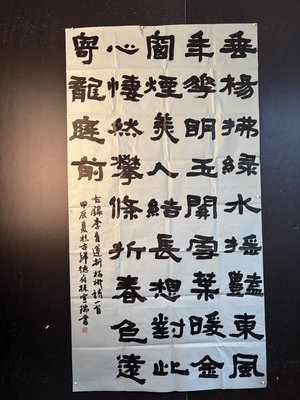 垂楊拂綠水搖豔東風
年華明玉關雪葉暖金
窗煙美人結長想對此
心悽然攀條折春色遠
寄龍庭前
右錄李青蓮折楊柳詩一首
甲辰夏於古歸德府書